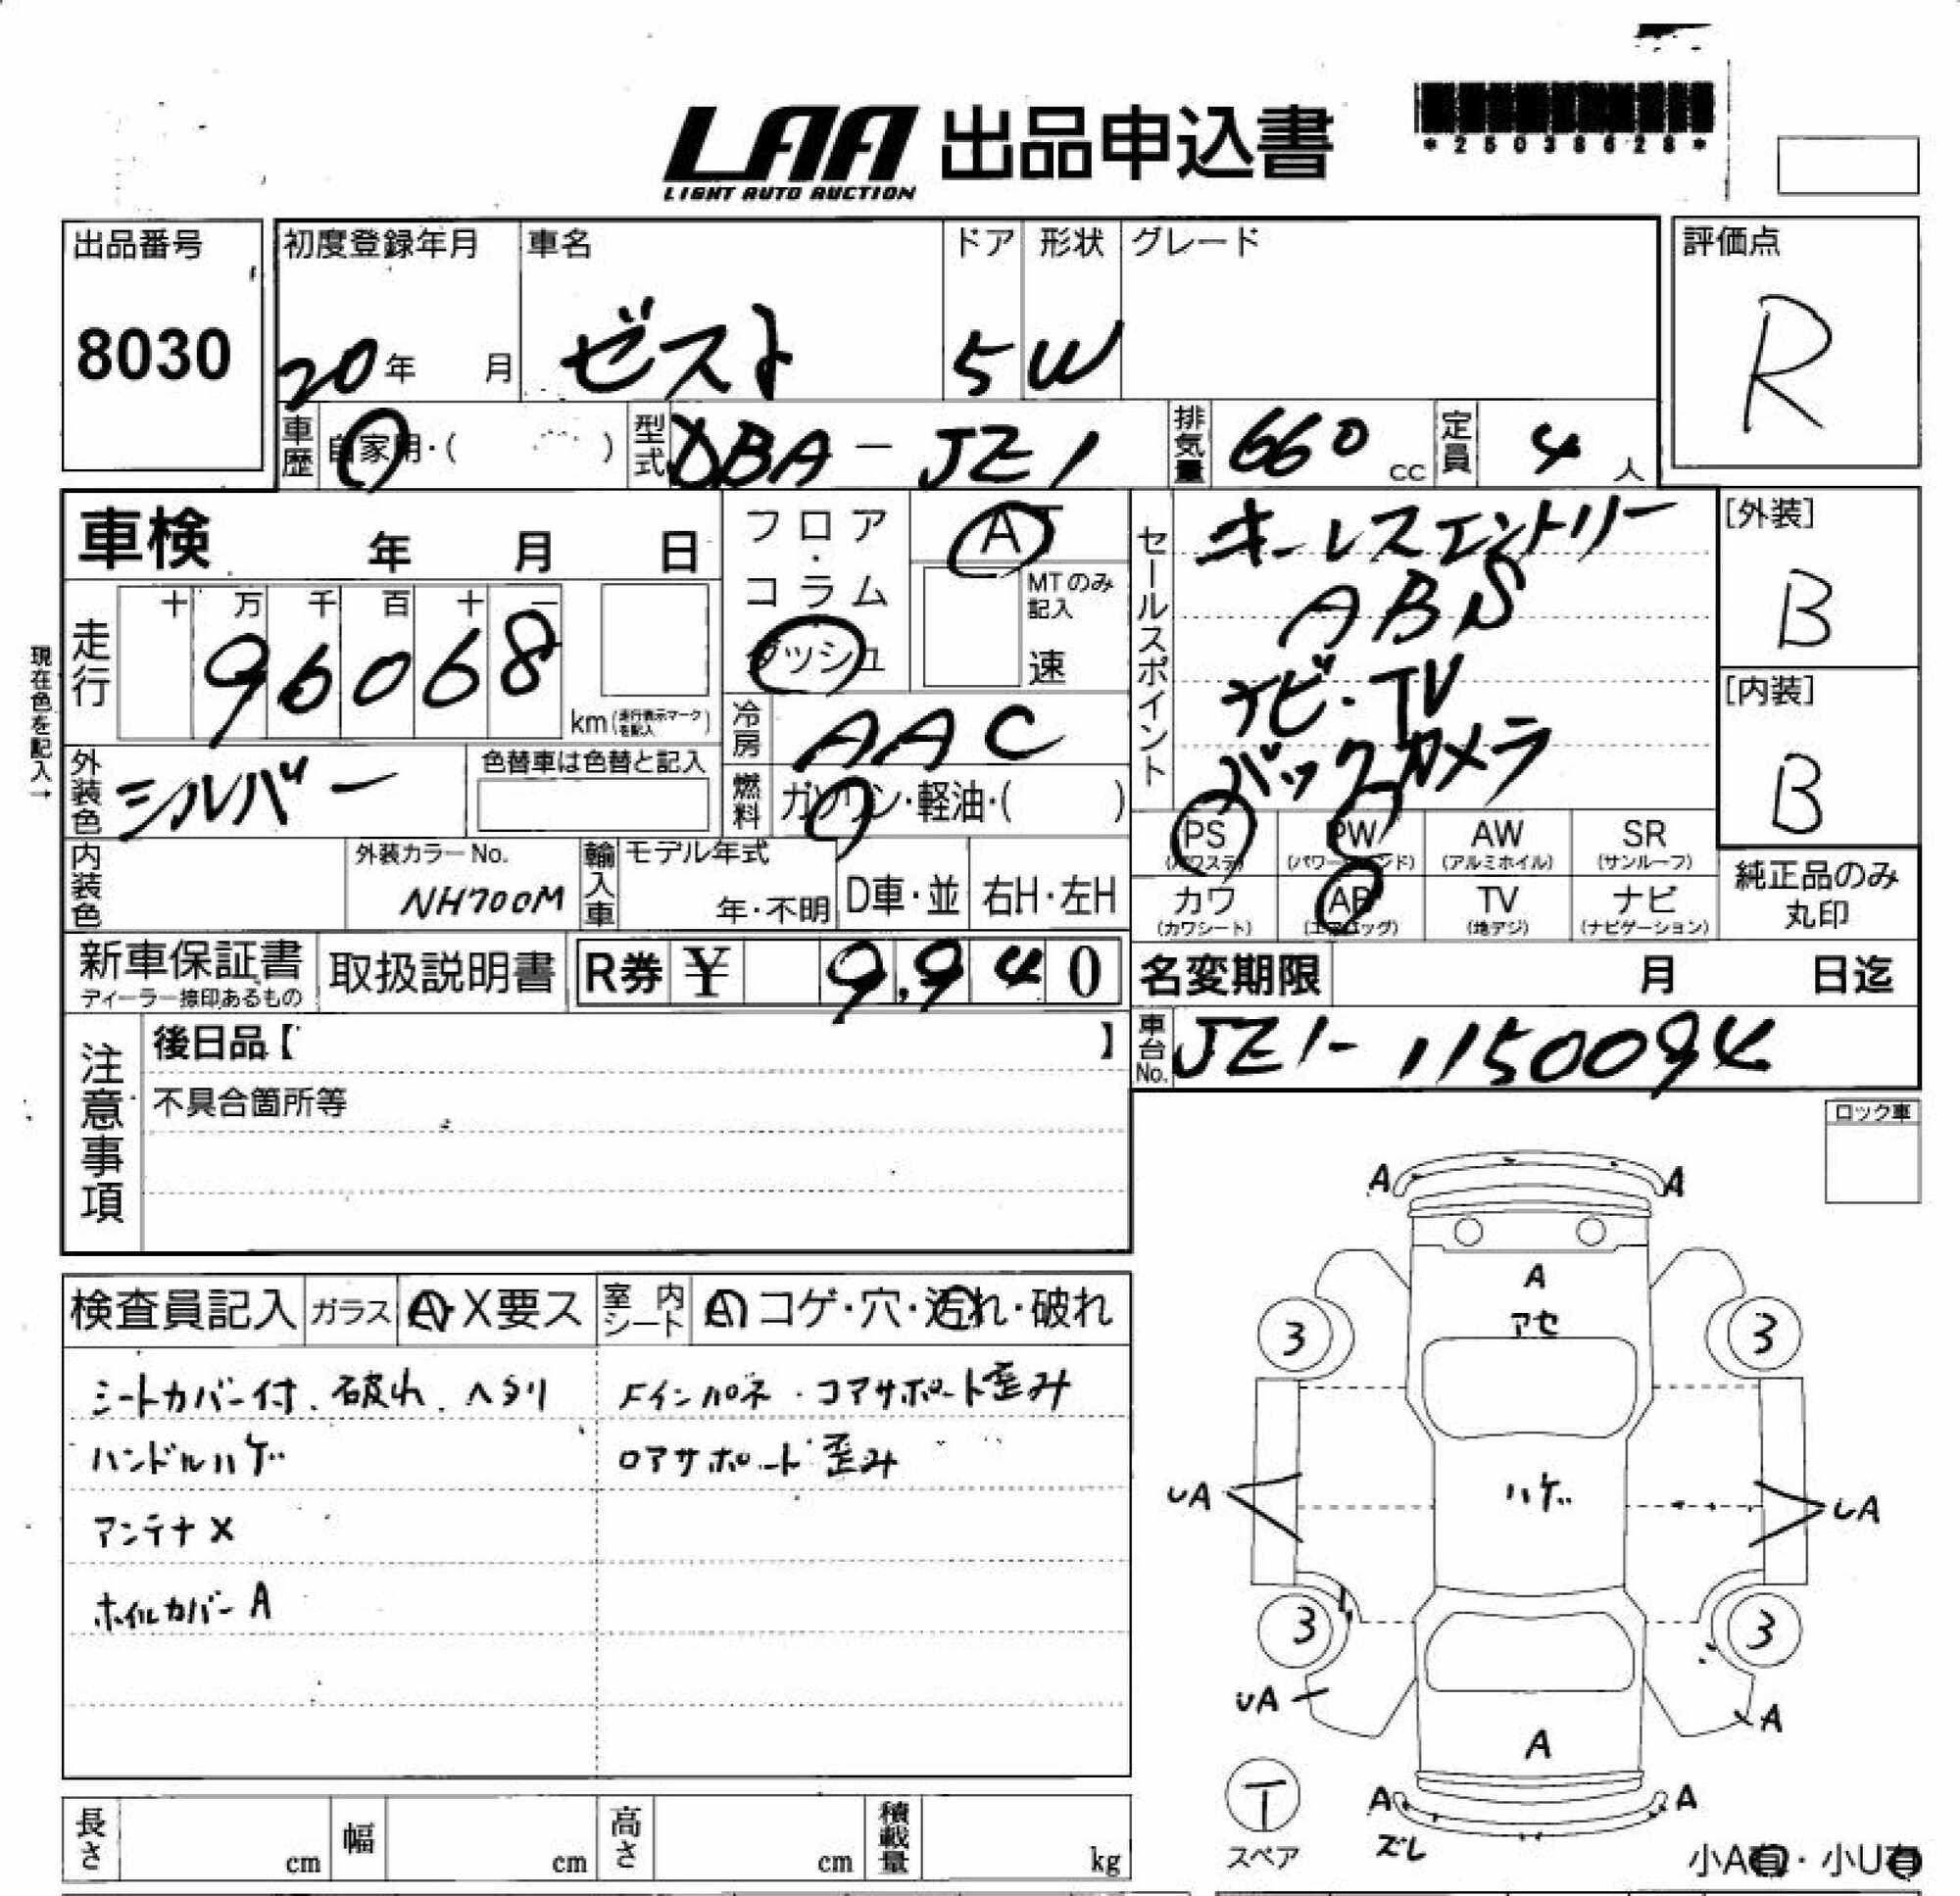 LAA 出品申込書
LIGHT AUTO AUCTION
*25038628*
出品番号
8030
初度登録年月
20年 月
車名
ゼスト
ドア
5
形状
W
グレード
評価点
R
車歴 自家用・( )
型式 DBA-JE1
排気量 660 cc
定員 4 人
車検 年 月 日
フロア・コラム
ダッシュ
AT
MTのみ記入
速
セールスポイント
キーレスエントリー
ABS
ナビ・TV
バックカメラ
[外装]
B
[内装]
B
現在色を記入→
走行
十 万 千 百 十 一
96068
km(走行表示マークを記入)
冷房 AAC
外装色 シルバー
色替車は色替と記入
燃料 ガソリン・軽油・( )
PS (パワステ)
PW (パワーウインド)
AW (アルミホイル)
SR (サンルーフ)
カワ (カワシート)
AB (エアバッグ)
TV (地デジ)
ナビ (ナビゲーション)
純正品のみ
丸印
内装色
外装カラーNo.
NH700M
輸入車
モデル年式
年・不明
D車・並
右H・左H
新車保証書
ディーラー捺印あるもの
取扱説明書
R券 ¥ 9,940
名変期限 月 日迄
車台No. JE1-1150094
注意事項
後日品【 】
不具合箇所等
ロック車
検査員記入
ガラス A・X要ス
室内シート A コゲ・穴・汚れ・破れ
シートカバー付、破れ、ヘタリ
ハンドルハゲ
アンテナX
ホイルカバーA
Fインパネ・コアサポート歪み
ロアサポート歪み
A A
A
アセ
3 3
UA ハゲ UA
3 3
UA A
A
A A
ズレ
T
スペア
小A有・小U有
長さ cm
幅 cm
高さ cm
積載量 kg